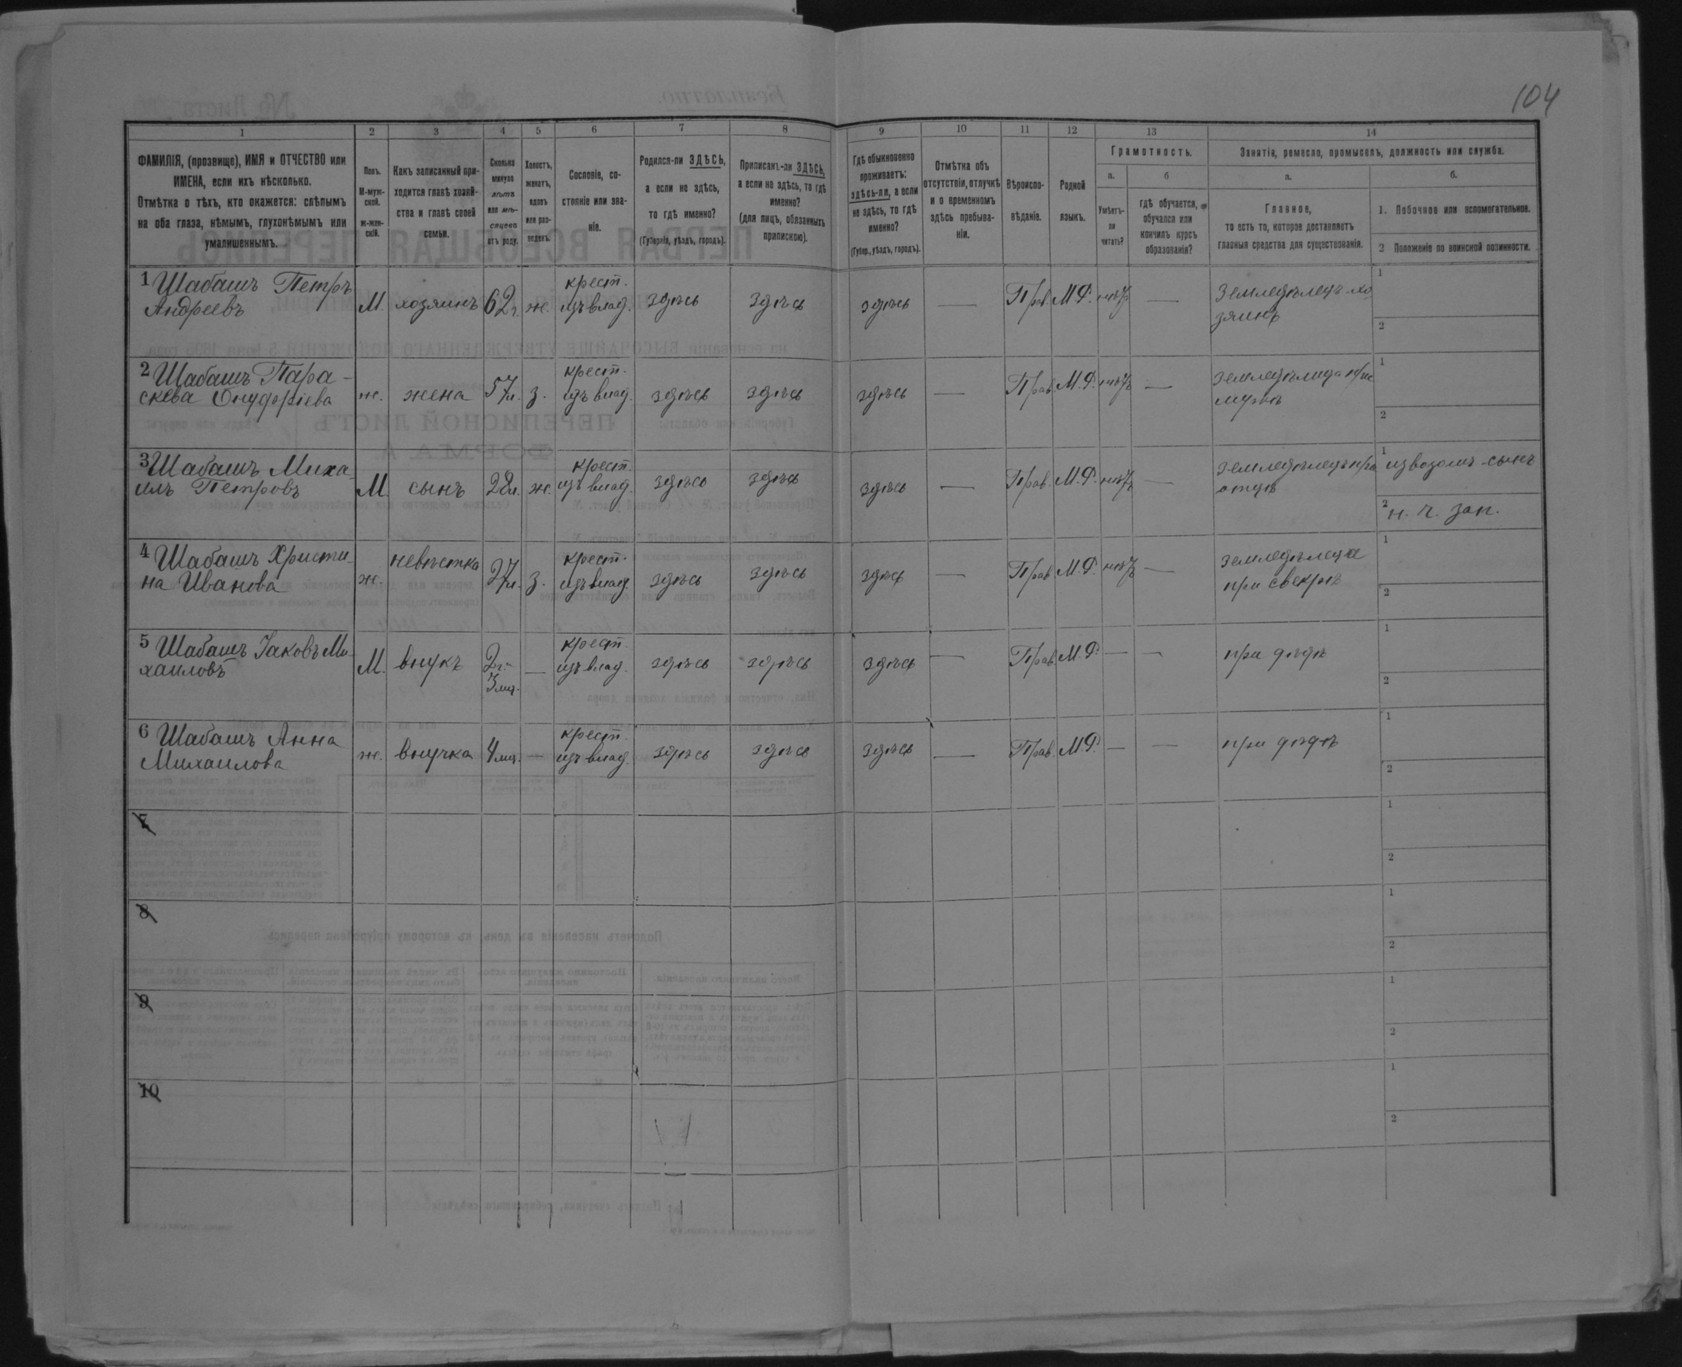 104
1 2 3 4 5 6 7 8 9 10 11 12 13 14
ФАМИЛІЯ, (прозвище), ИМЯ и ОТЧЕСТВО или
ИМЕНА, если ихъ нѣсколько.
Отмѣтка о тѣхъ, кто окажется: слѣпымъ
на оба глаза, нѣмымъ, глухонѣмымъ или
умалишеннымъ.
Полъ.
М-муж-
ской.
ж-жен-
скій.
Какъ записанный при-
ходится главѣ хозяй-
ства и главѣ своей
семьи.
Сколько
минуло
лѣтъ
или мѣ-
сяцевъ
отъ роду.
Холостъ,
женатъ,
вдовъ
или раз-
веденъ.
Сословіе, со-
стояніе или зва-
ніе.
Родился-ли ЗДѢСЬ,
а если не здѣсь,
то гдѣ именно?
(Губернія, уѣздъ, городъ).
Приписанъ-ли ЗДѢСЬ,
а если не здѣсь, то гдѣ
именно?
(для лицъ, обязанныхъ
припискою).
Гдѣ обыкновенно
проживаетъ:
здѣсь-ли, а если
не здѣсь, то гдѣ
именно?
(Губер., уѣздъ, городъ).
Отмѣтка объ
отсутствіи, отлучкѣ
и о временномъ
здѣсь пребыва-
ніи.
Вѣроиспо-
вѣданіе.
Родной
языкъ.
Грамотность.
а.
Умѣетъ-
ли
читать?
б
гдѣ обучается,
обучался или
кончилъ курсъ
образованія?
Занятія, ремесло, промыселъ, должность или служба.
а.
Главное,
то есть то, которое доставляетъ
главныя средства для существованія.
б.
1. Побочное или вспомогательное.
2 Положеніе по воинской повинности.
1 Шабашъ Петръ
Андреевъ
М. хозяинъ 62 г. ж. крест. изъ влад. здѣсь здѣсь здѣсь — Прав. М.Р. нѣтъ — Земледѣлецъ-хо
зяинъ
1
2
2 Шабашъ Пара-
скева Онуфріева
ж. жена 57 л. з. крест. изъ влад. здѣсь здѣсь здѣсь — Прав. М.Р. нѣтъ — земледѣлица при
мужѣ
1
2
3 Шабашъ Миха
илъ Петровъ
М сынъ 28 л. ж. крест. изъ влад. здѣсь здѣсь здѣсь — Прав. М.Р. нѣтъ — земледѣлецъ при
отцѣ
1 извозомъ-сынъ
2 н. ч. зап.
4 Шабашъ Христи-
на Иванова
ж. невѣстка 27 л. з. крест. изъ влад. здѣсь здѣсь здѣсь — Прав. М.Р. нѣтъ — земледѣлица
при свекрѣ
1
2
5 Шабашъ Іаковъ Ми-
хаиловъ
М. внукъ 2 г. 3 мц. — крест. изъ влад. здѣсь здѣсь здѣсь — Прав. М.Р. — — при дѣдѣ
1
2
6 Шабашъ Анна
Михаилова
ж. внучка 4 мц. — крест. изъ влад. здѣсь здѣсь здѣсь — Прав. М.Р. — — при дѣдѣ
1
2
7
1
2
8
1
2
9
1
2
10
1
2